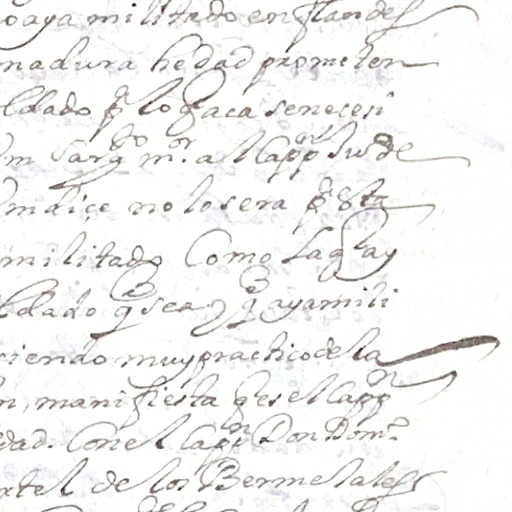 oaya militado en flandes
madura hedad prometen
ldado q̃ lo q̃ aca se necesi
Sargto mor. al Cappn Luis de
m dice no lo sera q̃ esta
militado Como la q̃ ay
ldado q̃ sea y q̃ aya mili
iendo muy prachico de la
n, manifiesta q̃ es el Cappn
dad. Con el Cappn Don Domo
rtel de los Bermeta les